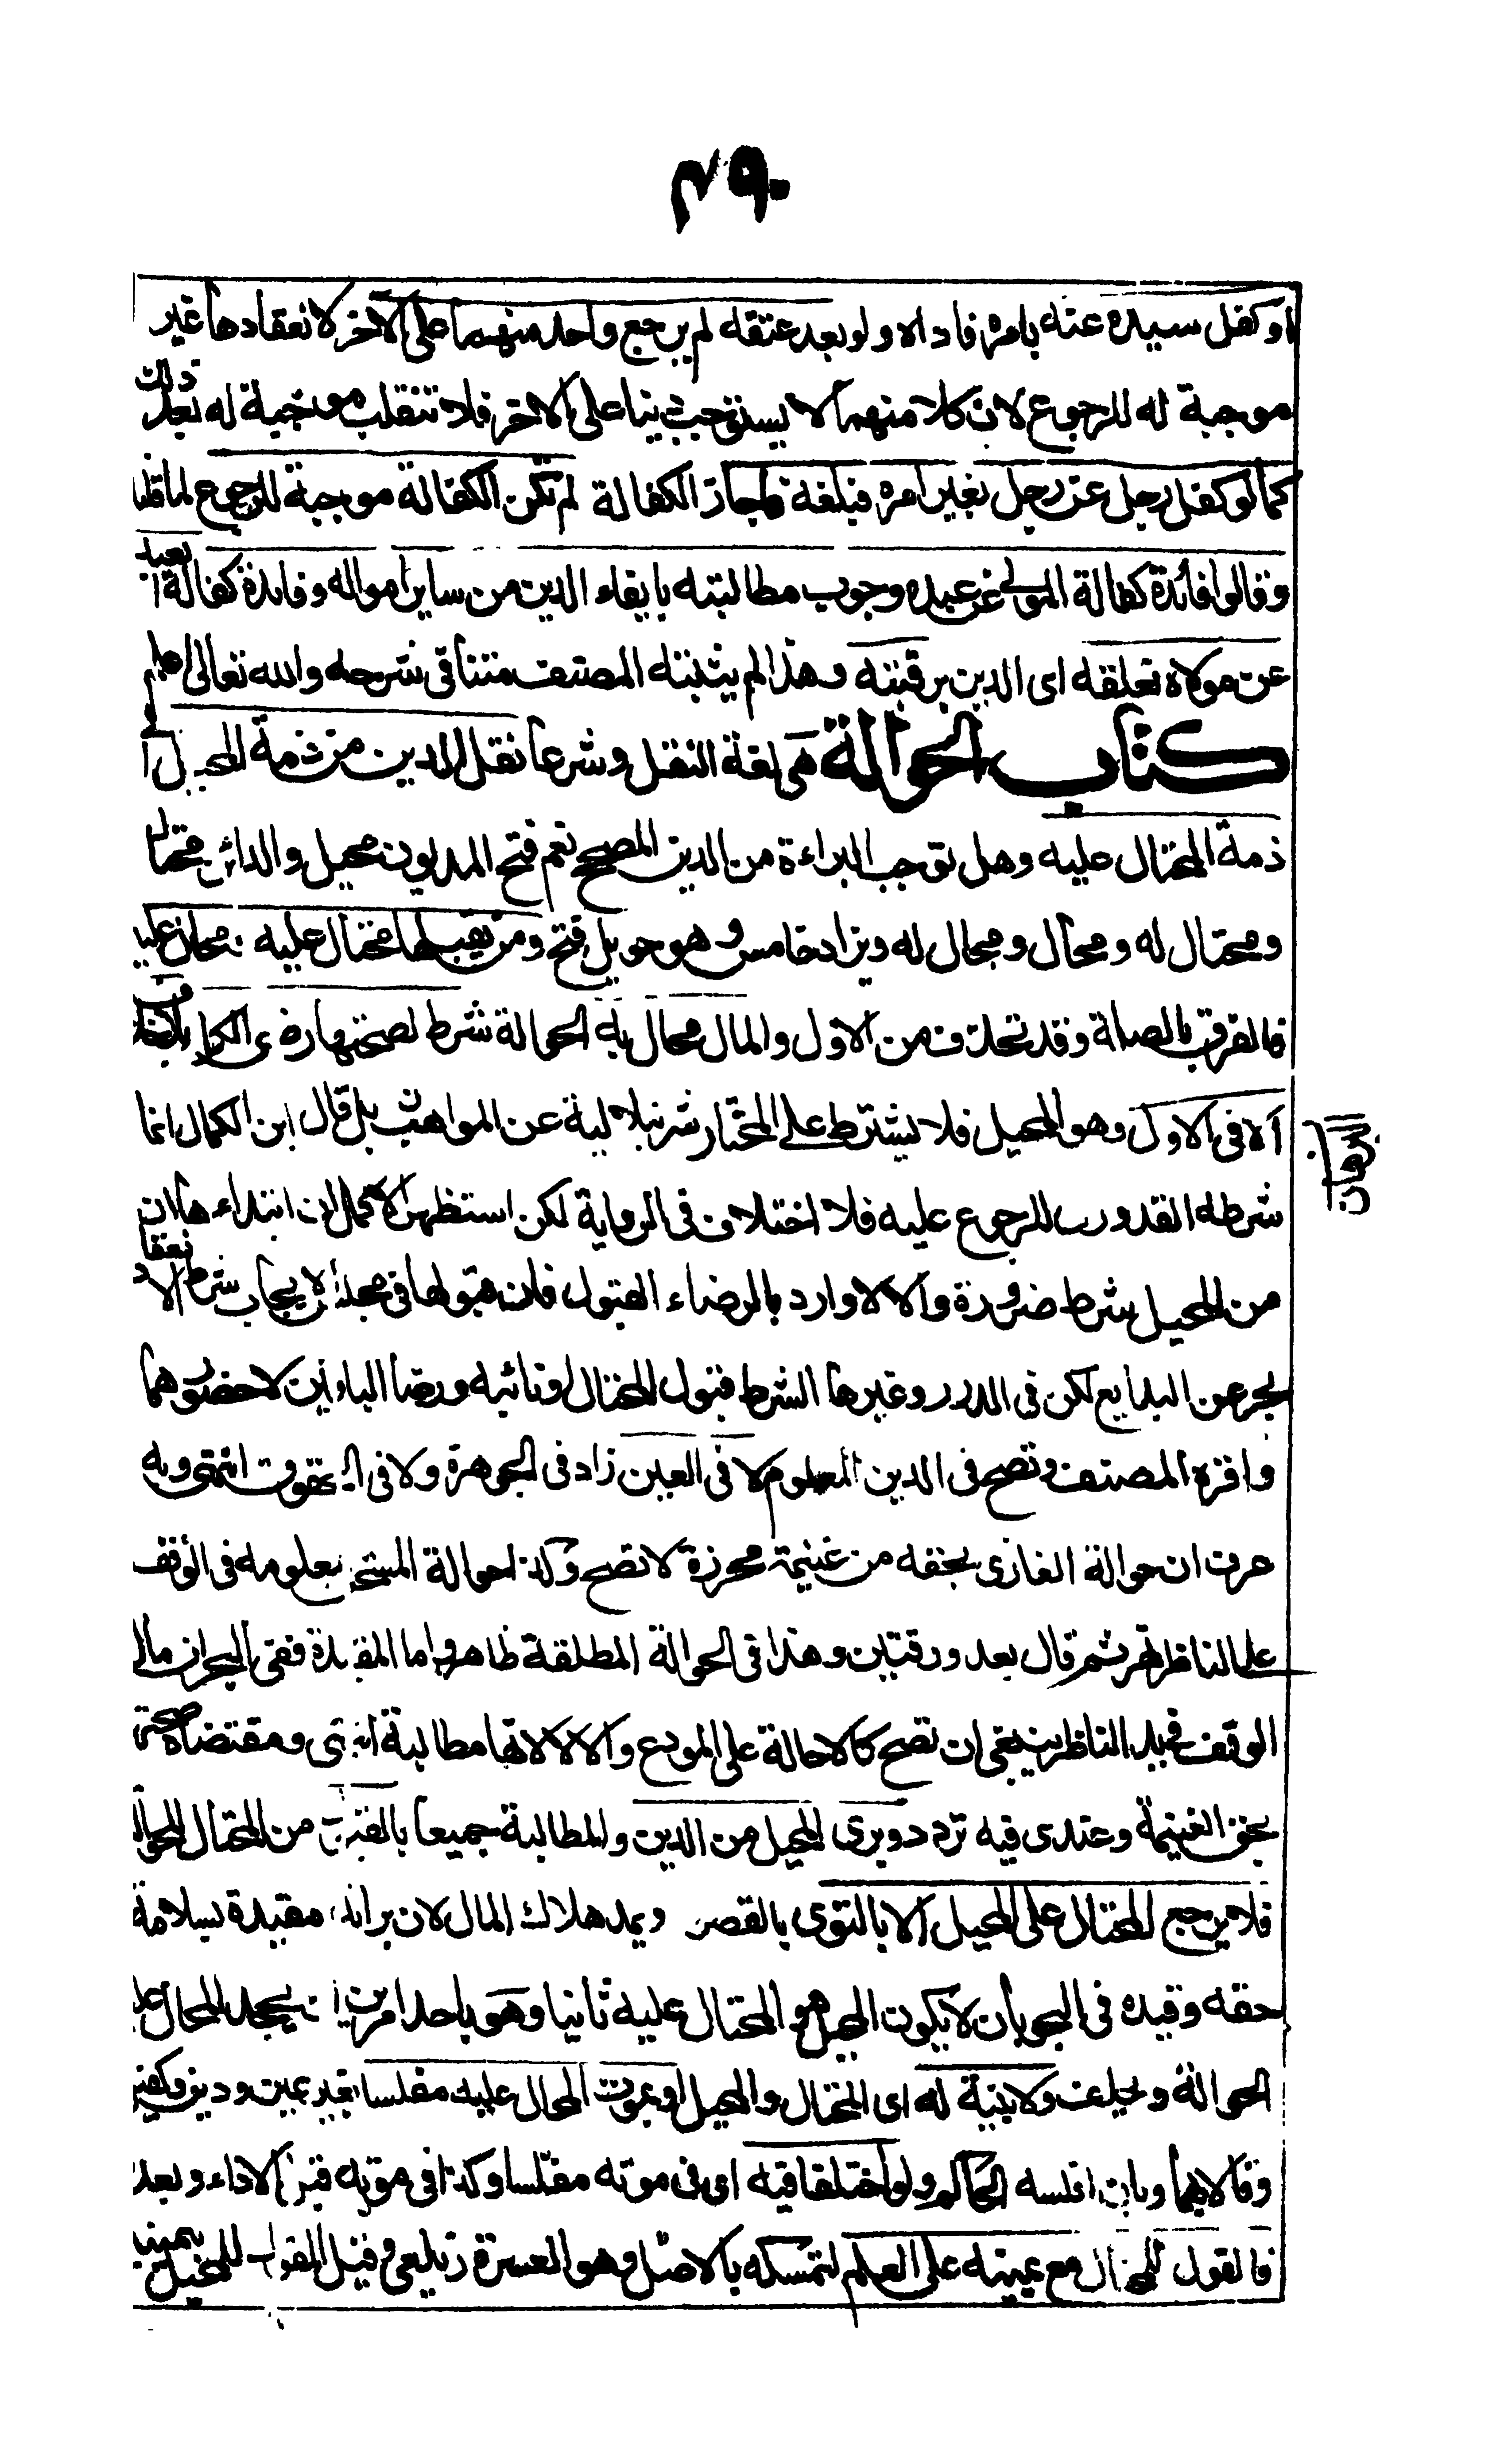 ٢٩٠
او كفل سيده عنه بامره فاداه ولو بعد عتقه لم يرجع واحد منهما على الآخر لانعقادها غير
موجبة له للرجوع لان كلا منهما لا يستوجب دينا على الاخر فلا تنقلب موجبة له بعد ذلك
كما لو كفل رجل عن رجل بغير امره فبلغه فاجاز الكفالة لم تكن الكفالة موجبة للرجوع لما قلنا
وقالوا فائدة كفالة المولى عن عبده وجوب مطالبته بايفاء الدين من ساير امواله وفايدة كفالة العبد
عن مولاه تعلقه اى الدين برقبته وهذا لم يثبته المصنف متنا فى شرحه والله تعالى اعلم
كتاب الحوالة هى لغة النقل وشرعا نقل الدين من ذمة المحيل الى
ذمة المحتال عليه وهل توجب البراءة من الدين المصحح نعم فتح المديون محيل والدائن محتال
ومحتال له ومحال ومحال له ويزاد خامس وهو حويل فتح ومن يقبلها محتال عليه ومحال عليه
فالفرق بالصلة وقد تحذف من الاول والمال محال به الحوالة شرط لصحتها رضى الكل بلا خلاف
الا فى الاول وهو المحيل فلا يشترط على المختار شرنبلالية عن المواهب بل قال ابن الكمال انما
شرطه القدورى للرجوع عليه فلا اختلاف فى الرواية لكن استظهر الاكمل ان ابتداءها ان
من المحيل شرط ضرورة والا لا واراد بالرضاء القبول فان قبولها فى مجلس الايجاب شرط الانعقاد
بحر عن البدايع لكن فى الدرر وغيرها الشرط قبول المحتال او نائبه ورضا الباقين لا حضورهما
واقره المصنف وتصح فى الدين المعلوم لا فى العين زاد فى الجوهرة ولا فى الحقوق انتهى وبه
عرف ان حوالة الغازى بحقه من غنيمة محرزة لا تصح وكذا حوالة المستحق بمعلومه فى الوقف
على الناظر نهر ثم قال بعد ورقتين وهذا فى الحوالة المطلقة ظاهر واما المقيدة ففى البحر ان مال
الوقف فى يد الناظر ينبغى ان تصح كالاحالة على المودع والا لا لانها مطالبة انتهى ومقتضاه صحتها
بحق الغنيمة وعندى فيه تردد وبرى المحيل من الدين والمطالبة جميعا بالقبول من المحتال للحوالة
فلا يرجع المحتال على المحيل الا بالتوى بالقصر ويمد هلاك المال لان براءته مقيدة بسلامة
حقه وقيده فى البحر بان لا يكون المحيل هو المحتال عليه ثانيا وهو باحد امرين ان يجحد المحال عليه
الحوالة ويحلف ولا بينة له اى المحتال والمحيل او يموت المحال عليه مفلسا بغير عين ودين وكفيل
وقالا بهما وبان افلسه الحاكم ولو اختلفا فيه اى فى موته مفلسا وكذا فى موته قبل الاداء وبعده
فالقول للمحتال مع يمينه على العلم لتمسكه بالاصل وهو العسرة زيلعى وقيل القول للمحيل بيمينه